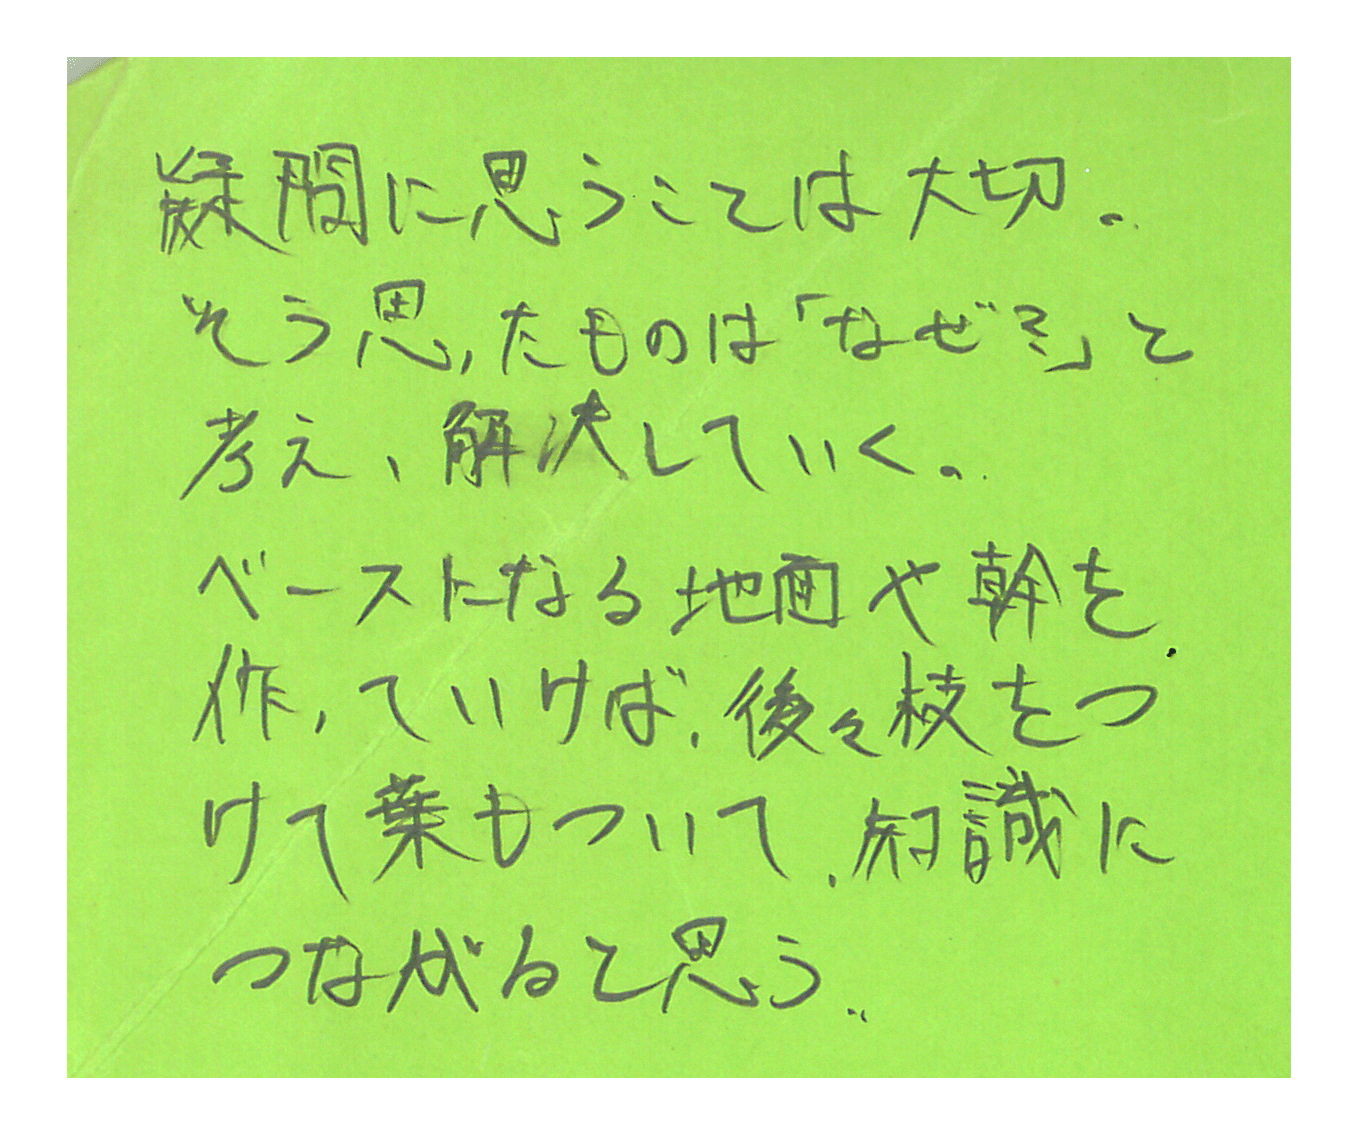 疑問に思うことは大切。
そう思ったものは「なぜ?」と
考え、解決していく。
ベースになる地面や幹を
作っていけば、後々枝をつ
けて葉もついて、知識に
つながると思う。